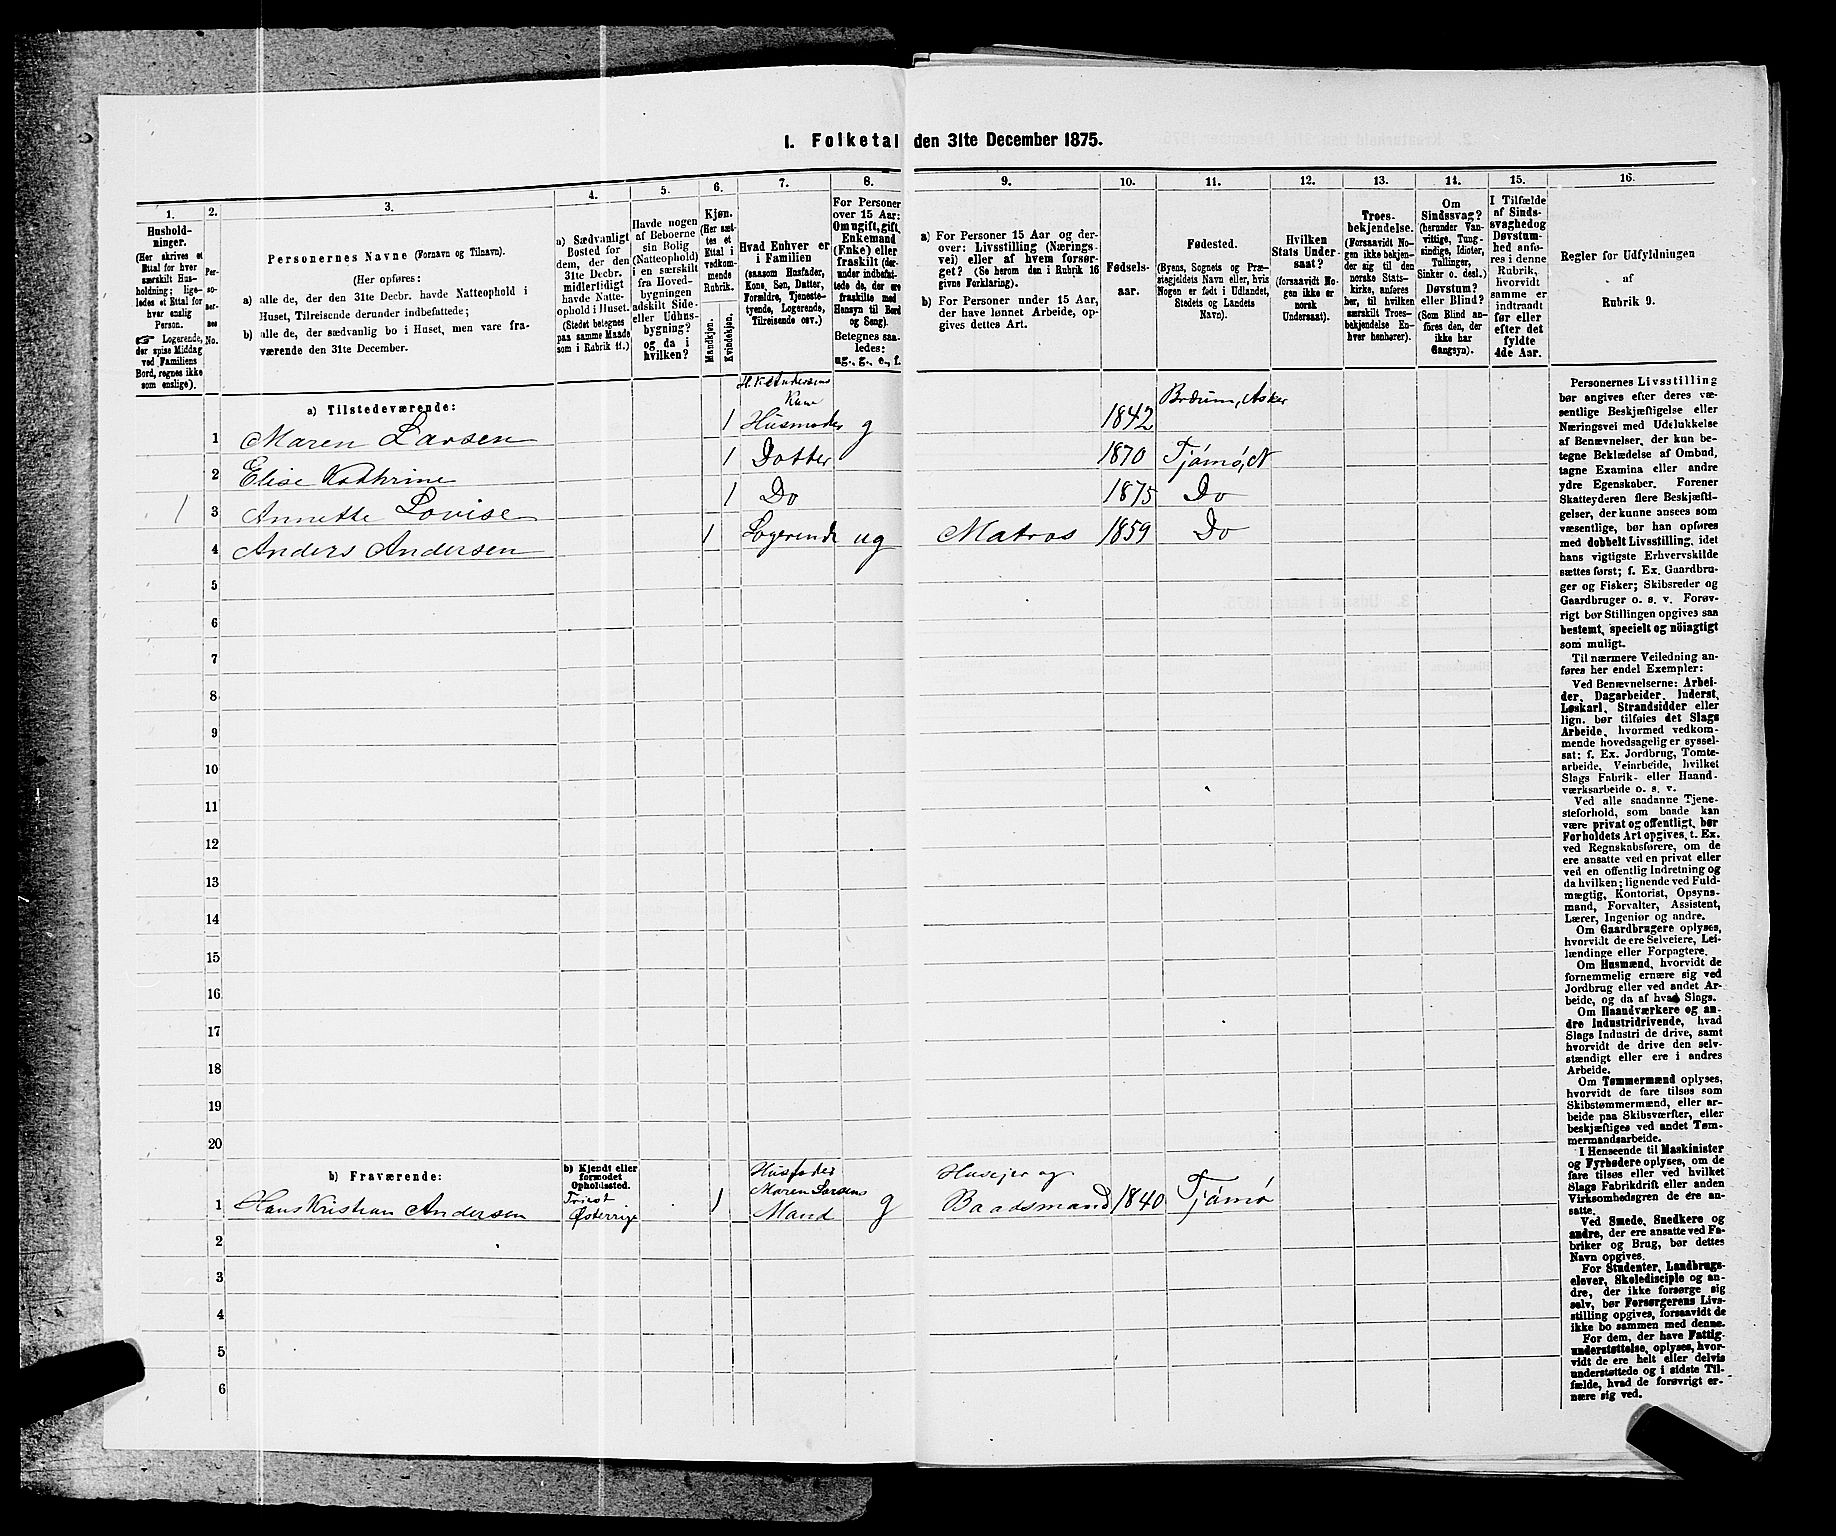 I. Folketal den 31te December 1875.
1.
Hushold-
ninger.
(Her skrives et
Ettal for hver
særskilt Hus-
holdning; lige-
ledes et Ettal for
hver enslig
Person.
☞ Logerende,
der spise Middag
ved Familiens
Bord, regnes ikke
som enslige).
2.
Per-
so-
ner-
nes
No.
3.
Personernes Navne (Fornavn og Tilnavn).
(Her opføres:
a) alle de, der den 31te Decbr. havde Natteophold i
Huset, Tilreisende derunder indbefattede;
b) alle de, der sædvanlig bo i Huset, men vare fra-
værende den 31te December.
4.
a) Sædvanligt
Bosted for
dem, der den
31te Decbr.
midlertidigt
havde Natte-
ophold i Huset.
(Stedet betegnes
paa samme Maade
som i Rubrik 11.)
5.
Havde nogen
af Beboerne
sin Bolig
(Natteophold)
i en særskilt
fra Hoved-
bygningen
adskilt Side-
eller Udhus-
bygning?
og da i
hvilken?
6.
Kjøn.
(Her sæt-
tes et
Ettal i
vedkom-
mende
Rubrik.
Mandkjøn.
Kvindekjøn.
7.
Hvad Enhver er
i Familien
(saasom Husfader,
Kone, Søn, Datter,
Forældre, Tjeneste-
tyende, Logerende,
Tilreisende osv.)
8.
For Personer
over 15 Aar:
Om ugift, gift,
Enkemand
(Enke) eller
fraskilt (der-
under indbefat-
tede de, der ere
fraskilte med
Hensyn til Bord
og Seng).
Betegnes saa-
ledes:
ug., g., e., f.
9.
a) For Personer 15 Aar og der-
over: Livsstilling (Nærings-
vei) eller af hvem forsør-
get? (Se herom den i Rubrik 16
givne Forklaring).
b) For Personer under 15 Aar,
der have lønnet Arbeide, op-
gives dettes Art.
10.
Fødsels-
aar.
11.
Fødested.
(Byens, Sognets og Præ-
stegjeldets Navn eller, hvis
Nogen er født i Udlandet,
Stedets og Landets
Navn).
12.
Hvilken
Stats Under-
saat?
(forsaavidt No-
gen ikke er
norsk
Undersaat).
13.
Troes-
bekjendelse.
(Forsaavidt No-
gen ikke bekjen-
der sig til den
norske Stats-
kirke, anføres
her, til hvilken
særskilt Troes-
bekjendelse En-
hver henhører).
14.
Om
Sindssvag?
(herunder Van-
vittige, Tung-
sindige, Idioter,
Tullinger,
Sinker o. desl.)
Døvstum?
eller Blind?
(Som Blind an-
føres den, der
ikke har
Gangsyn).
15.
I Tilfælde
af Sinds-
svaghed og
Døvstum-
hed anfø-
res i denne
Rubrik,
hvorvidt
samme er
indtraadt
før eller
efter det
fyldte
4de Aar.
16.
Regler for Udfyldningen
af
Rubrik 9.
a) Tilstedeværende:
1 Maren Larsen 1 H. K. Andersens Kone Husmoder g 1842 Bærum, Asker
2 Elise Kathrine 1 Datter 1870 Tjømø, N
1 3 Annette Lovise 1 Do 1875 Do
4 Anders Andersen 1 Logerende ug Matros 1859 Do
5
6
7
8
9
10
11
12
13
14
15
16
17
18
19
20
b) Fraværende:
b) Kjendt eller
formodet
Opholdssted.
1 Hans Kristian Andersen Triest Østerrige 1 Husfader Maren Larsens Mand g Huseier og Baadsmand 1840 Tjømø
2
3
4
5
6
Personernes Livsstilling
bør angives efter deres væ-
sentlige Beskjæftigelse eller
Næringsvei med Udelukkelse
af Benævnelser, der kun be-
tegne Beklædelse af Ombud,
tagne Examina eller andre
ydre Egenskaber. Forener
Skatteyderen flere Beskjæfti-
gelser, der kunne ansees som
væsentlige, bør han opføres
med dobbelt Livsstilling, idet
hans vigtigste Erhvervskilde
sættes først; f. Ex. Gaardbru-
ger og Fisker; Skibsreder og
Gaardbruger o. s. v. Forøv-
rigt bør Stillingen opgives saa
bestemt, specielt og nöiagtigt
som muligt.
Til nærmere Veiledning an-
føres her endel Exempler:
Ved Benævnelserne: Arbei-
der, Dagarbeider, Inderst,
Løskarl, Strandsidder eller
lign. bør tilføies det Slags
Arbeide, hvormed vedkom-
mende hovedsagelig er syssel-
sat; f. Ex. Jordbrug, Tomte-
arbeide, Veiarbeide, hvilket
Slags Fabrik- eller Haand-
værksarbeide o. s. v.
Ved alle saadanne Tjene-
steforhold, som baade kan
være privat og offentligt, bør
Forholdets Art opgives, t. Ex.
ved Regnskabsførere, om de
ere ansatte ved en privat eller
ved en offentlig Indretning og
da hvilken; lignende ved Fuld-
mægtig, Kontorist, Opsyns-
mand, Forvalter, Assistent,
Lærer, Ingeniør og andre.
Om Gaardbrugere oplyses,
hvorvidt de ere Selveiere, Lei-
lændinge eller Forpagtere.
Om Husmænd, hvorvidt de
fornemmelig ernære sig ved
Jordbrug eller ved andet Ar-
beide, og da af hvad Slags.
Om Haandværkere og an-
dre Industridrivende, hvad
Slags Industri de drive, samt
hvorvidt de drive den selv-
stændigt eller ere i andres
Arbeide.
Om Tømmermænd oplyses,
hvorvidt de fare tilsøs som
Skibstømmermænd, eller ar-
beide paa Skibsværfter, eller
beskjæftiges ved andet Tøm-
mermandsarbeide.
I Henseende til Maskinister
og Fyrbødere oplyses, om de
fare tilsøs eller ved hvilket
Slags Fabrikdrift eller anden
Virksomhedsgren de ere an-
satte.
Ved Smede, Snedkere og
andre, der ere ansatte ved Fa-
briker og Brug, bør dettes
Navn opgives.
For Studenter, Landbrugs-
elever, Skoledisciple og an-
dre, der ikke forsørge sig
selv, bør Forsørgerens Livs-
stilling opgives, forsaavidt de
ikke bo sammen med denne.
For dem, der have Fattig-
understøttelse, oplyses, hvor-
vidt de ere helt eller delvis
understøttede og i sidste Til-
fælde, hvad de forøvrigt er-
nære sig ved.